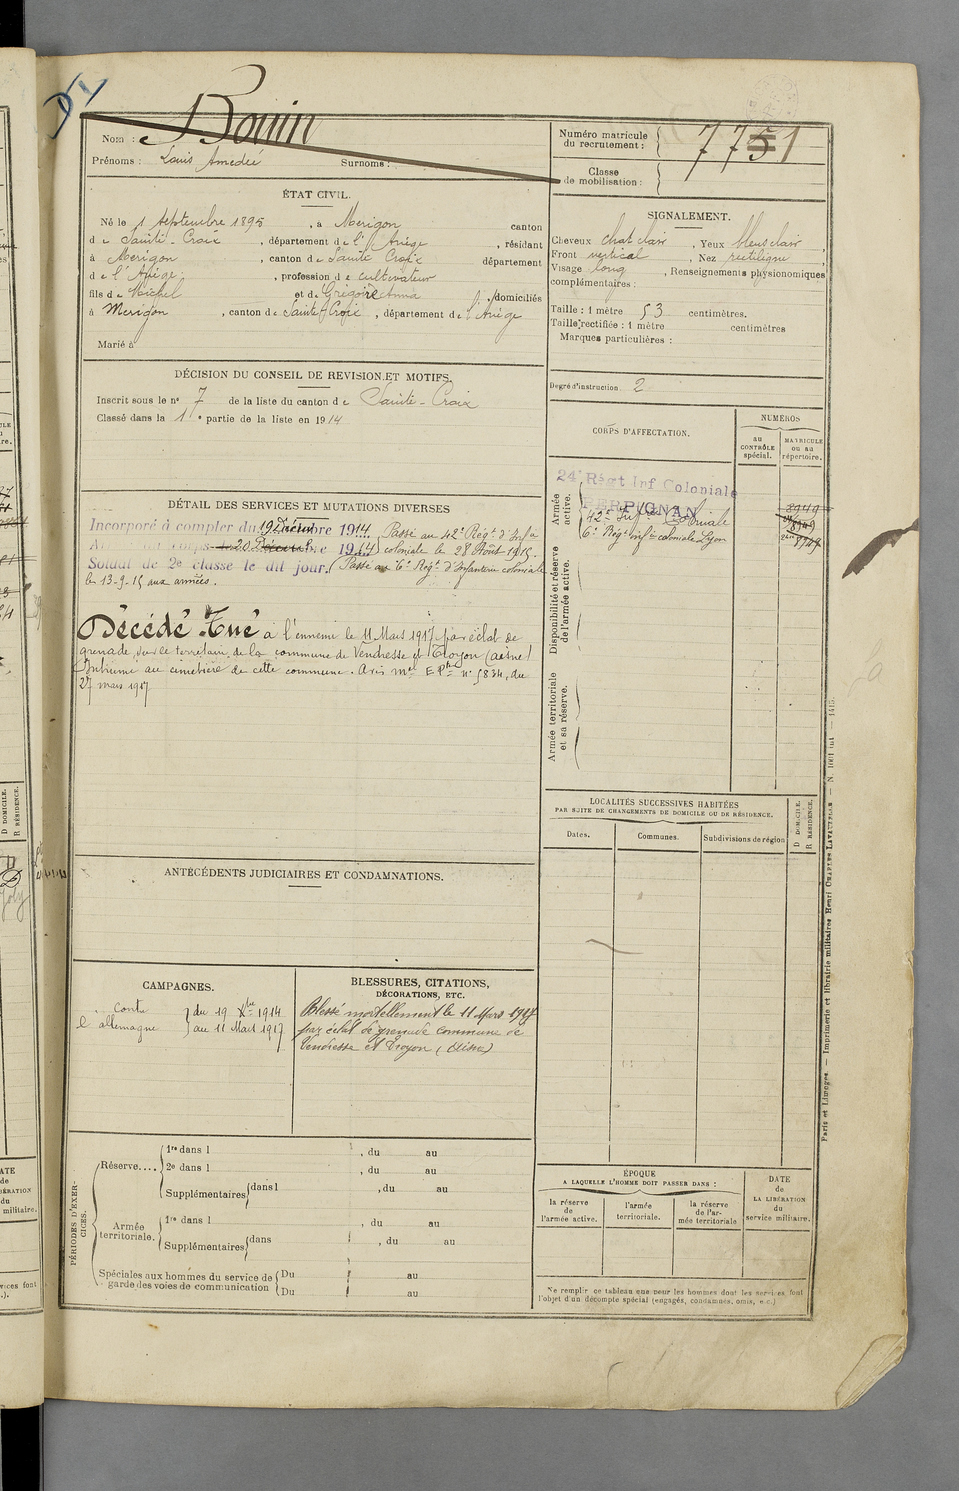 Bouin
Nom :
Prénoms : Louis Amedée Surnoms :
Numéro matricule du recrutement : 7751
Classe de mobilisation :
ÉTAT CIVIL.
Né le 1 Septembre 1895, à Merigon canton
de Sainte-Croix, département de l'Ariège, résidant
à Merigon, canton de Sainte Croix département
de l'Ariège, profession de cultivateur
fils de Michel et de Grégoire Anna domiciliés
à Merigon, canton de Sainte-Croix, département de l'Ariège
Marié à
SIGNALEMENT.
Cheveux chat clair, Yeux bleus clair,
Front vertical, Nez rectiligne,
Visage long, Renseignements physionomiques
complémentaires :
Taille : 1 mètre 53 centimètres.
Taille rectifiée : 1 mètre centimètres
Marques particulières :
DÉCISION DU CONSEIL DE REVISION ET MOTIFS.
Inscrit sous le n° 7 de la liste du canton de Sainte-Croix
Classé dans la 1e partie de la liste en 1914
Degré d'instruction 2
CORPS D'AFFECTATION.
NUMÉROS
au CONTRÔLE spécial.
MATRICULE ou au répertoire.
Armée active.
24e Régt Inf Coloniale
PERPIGNAN
42e Infrie Coloniale
6e Régt Infie coloniale Lyon
8949
Disponibilité et réserve de l'armée active.
Armée territoriale et sa réserve.
DÉTAIL DES SERVICES ET MUTATIONS DIVERSES
Incorporé à compter du 19 Décembre 1914 Passé au 42e Régt d'Infie
20 Décembre 1914 coloniale le 28 Août 1915.
Soldat de 2e classe le dit jour. Passé au 6e Régt d'Infanterie coloniale
le 13-9-15 aux armées.
Décédé Tué à l'ennemi le 11 Mars 1917 par éclat de
grenade sur le territoire de la commune de Vendresse et Troyon (aisne)
Inhumé au cimetière de cette commune. Avis mel EPte n° 5834, du
27 mars 1917
LOCALITÉS SUCCESSIVES HABITÉES
PAR SUITE DE CHANGEMENTS DE DOMICILE OU DE RÉSIDENCE.
Dates. Communes. Subdivisions de région
D DOMICILE.
R RÉSIDENCE.
ANTÉCÉDENTS JUDICIAIRES ET CONDAMNATIONS.
CAMPAGNES.
Contre l'allemagne
du 19 Xbre 1914
au 11 Mars 1917
BLESSURES, CITATIONS,
DÉCORATIONS, ETC.
Blessé mortellement le 11 Mars 1917
par éclat de grenade commune de
Vendresse et Troyon (Aisne)
PÉRIODES D'EXERCICES.
Réserve....
1re dans l , du au
2e dans l , du au
Supplémentaires dans l , du au
Armée territoriale.
1re dans l , du au
Supplémentaires dans , du au
Spéciales aux hommes du service de garde des voies de communication
Du au
Du au
ÉPOQUE
A LAQUELLE L'HOMME DOIT PASSER DANS :
la réserve de l'armée active.
l'armée territoriale.
la réserve de l'armée territoriale
DATE de LA LIBÉRATION du service militaire.
Ne remplir ce tableau que pour les hommes dont les services font
l'objet d'un décompte spécial (engagés, condamnés, omis, etc.)
Paris et Limoges. — Imprimerie et librairie militaires Henri CHARLES-LAVAUZELLE